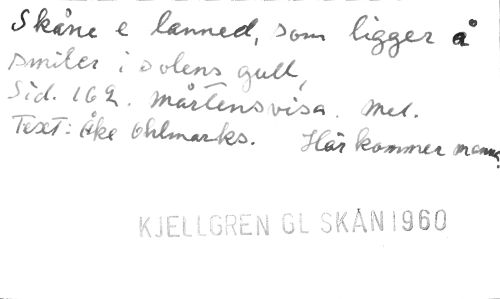 Skåne e lanned, som ligger å
smiler i solens gull,
Sid. 162. mårtensvisa. mel.
Text: Åke Ohlmarks. Här kommer
KJELLGREN GL SKÅN 1960